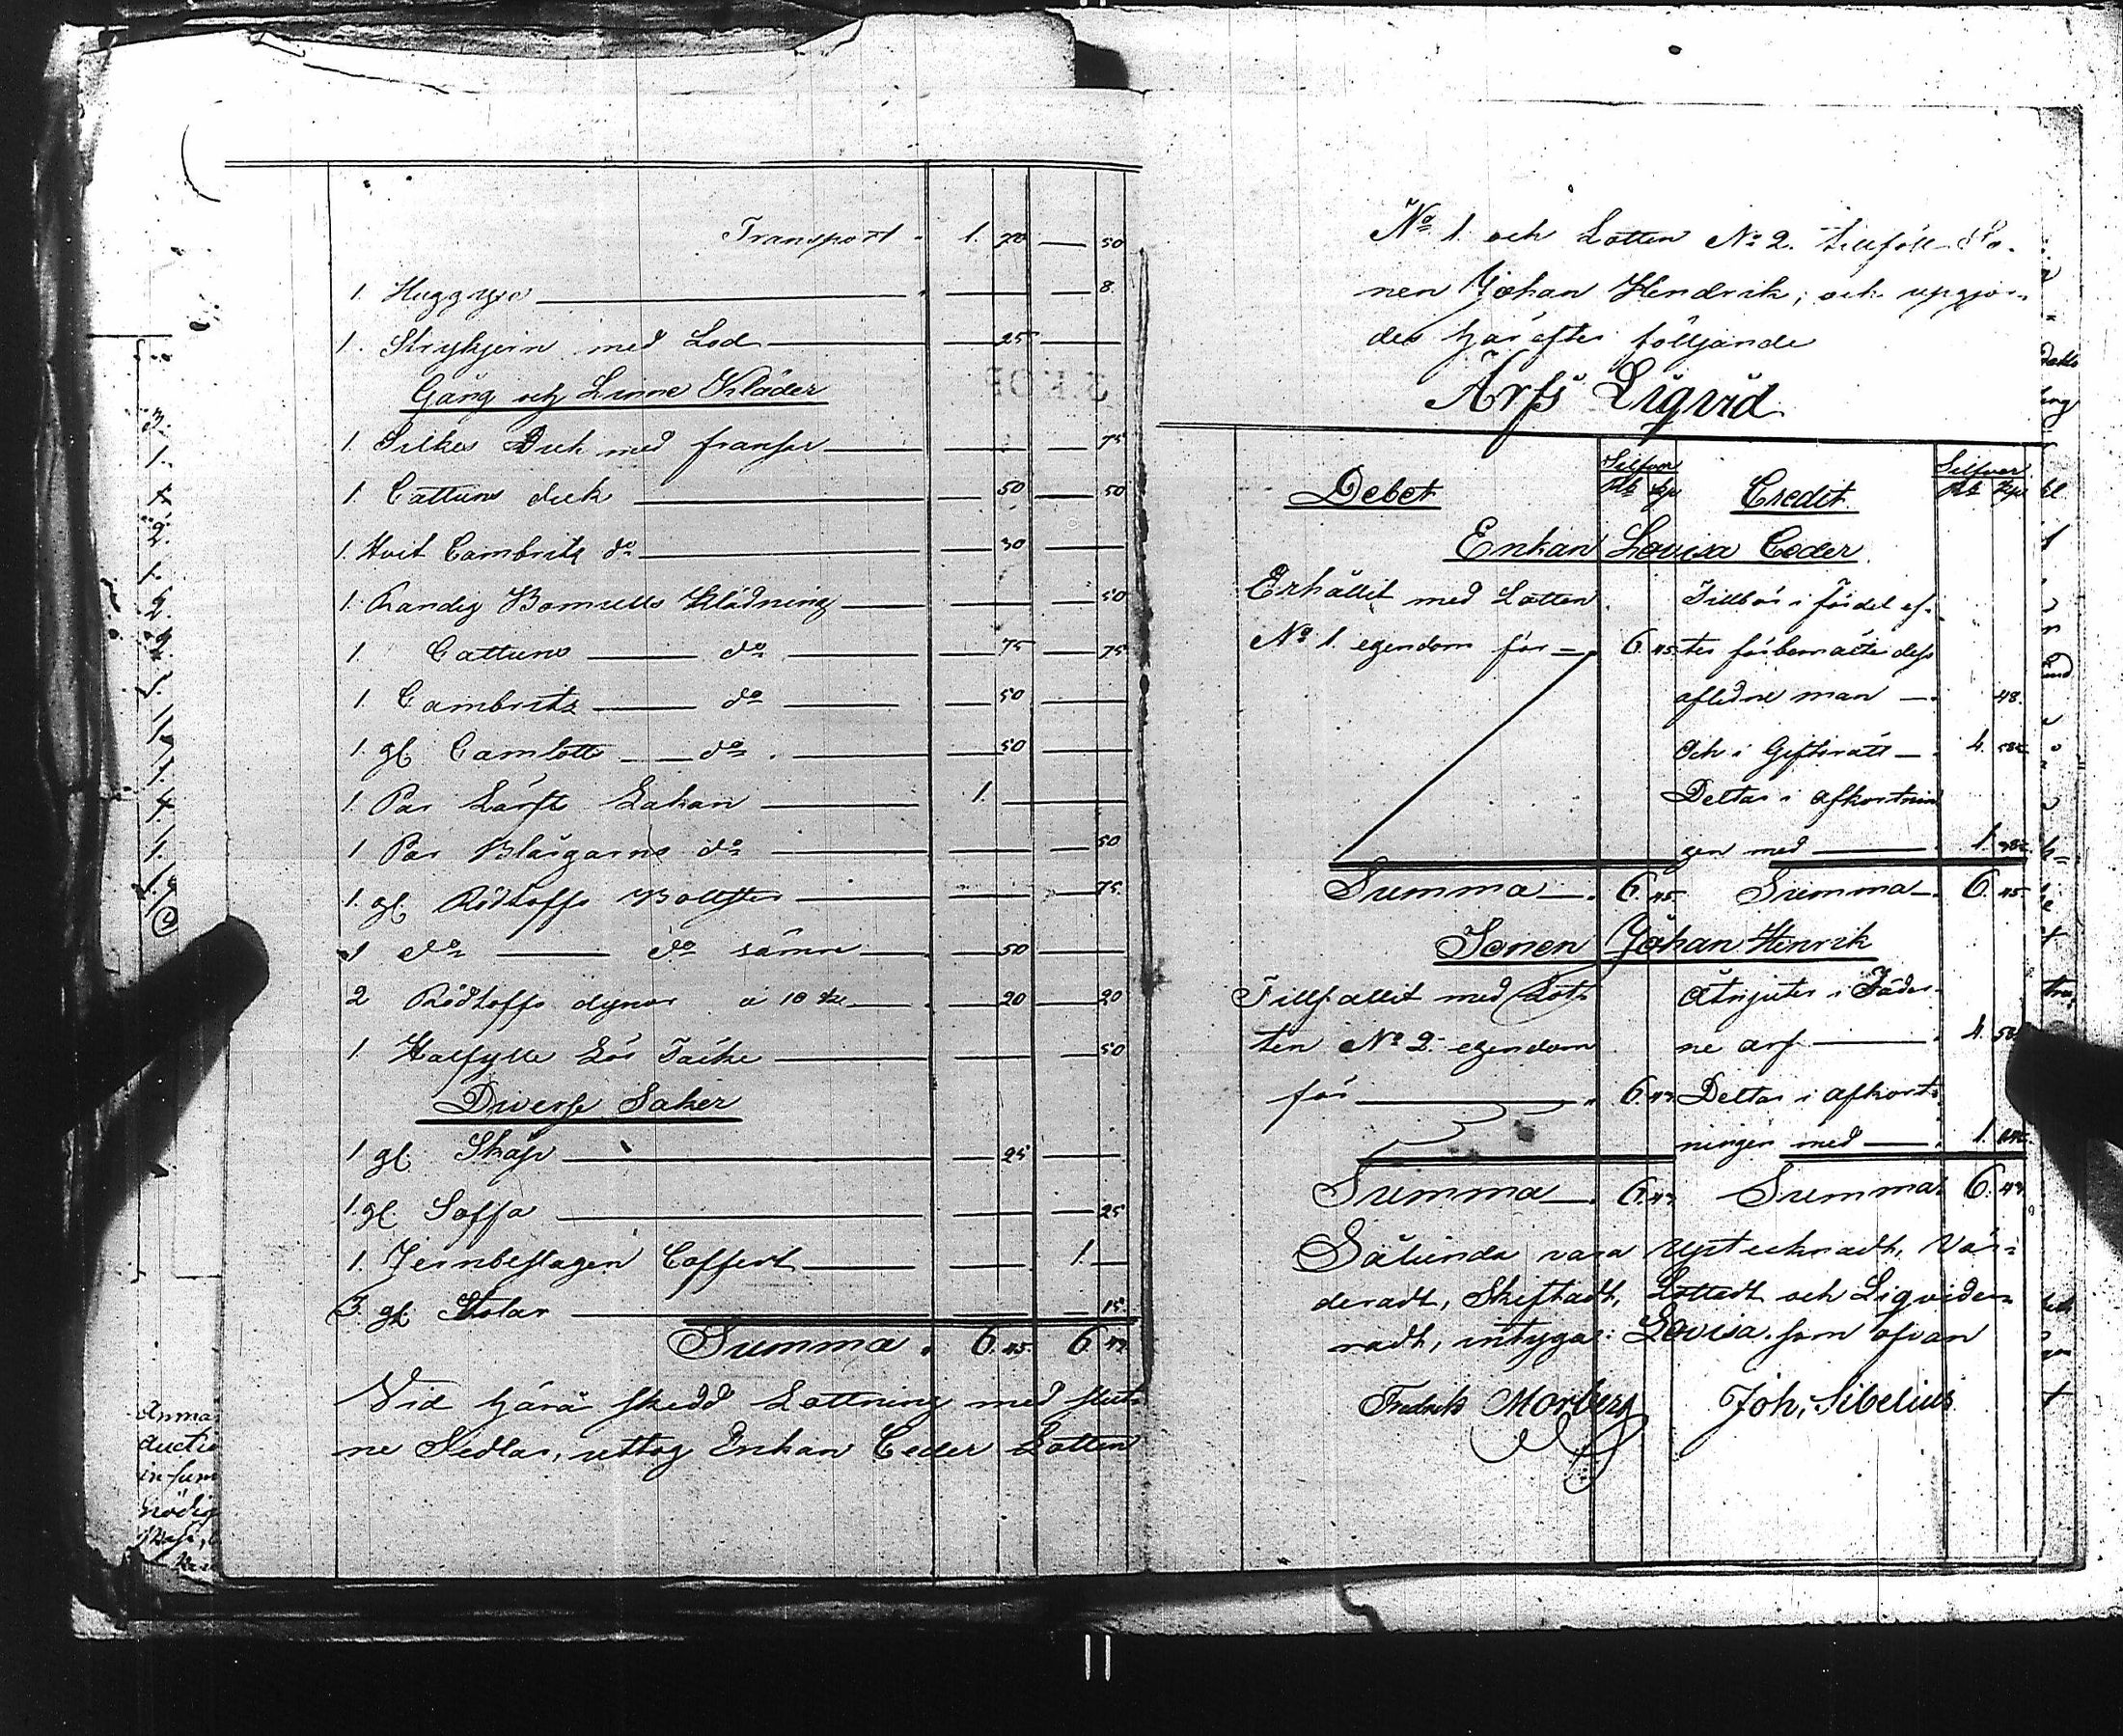 Transport 1. 70 — 50
1. Huggyxa — 8.
1. Strykjern med Lod — 25 —
Gång och Linne Kläder
1. Silkes Duk med fransar — 75
1. Cattuns duk — 50 — 50
1. Hvit Cambriks do — 30 —
1. Randig Bomulls Klädning — 50
1. Cattuns — do — 75 — 75
1. Cambriks — do — 50 —
1. gl. Camlotts — do — 50 —
1. Par Lärfts Lakan — 1. —
1 Par Blågarns do — 50
1. gl. Bolster — 75.
1 do — do sämre — 50 —
2 dynor a 10 — 20 — 20
1. Halfylle Täcke — 50
Diverse Saker
1 gl. Skåp — 25 —
1. gl. Soffa — 25
1. Jernbeslagen Coffert — 1. —
3. gl. Stolar — 15
Summa 6. 45. 6. 47
Vid härå skedd Lottning med slut-
ne Sedlar, uttog Enkan Ceder Lotten
No 1. och Lotten No 2. tillföll So-
nen Johan Hendrik; och upgjor-
des härefter följande
Arfs Liqvid
Debet Silfver Credit Silfver
Enkan Lovisa Ceder
Erhållit med Lotten Tillkor i fördel ef-
No 1. egendom för — 6. 45 ter förbemälte dess
aflidne man — 48.
Och i Giftorätt — 4.
Deltar i afkortnin
gen med — 1.
Summa — 6. 45 Summa — 6. 45.
Sonen Johan Henrik
Tillfallit med Lot- Åtnjuter i Fäder-
ten No 2. egendom ne arf — 4.
för — 6. 47 Deltar i afkort-
ningen med — 1.
Summa — 6. 47 Summa 6. 47
Sålunda vara Upteknadt, Vär-
deradt, Skiftadt, Lottadt och Liqvide-
radt, intygar: Lovisa som ofvan
Fredrik Morberg Joh. Sibelius